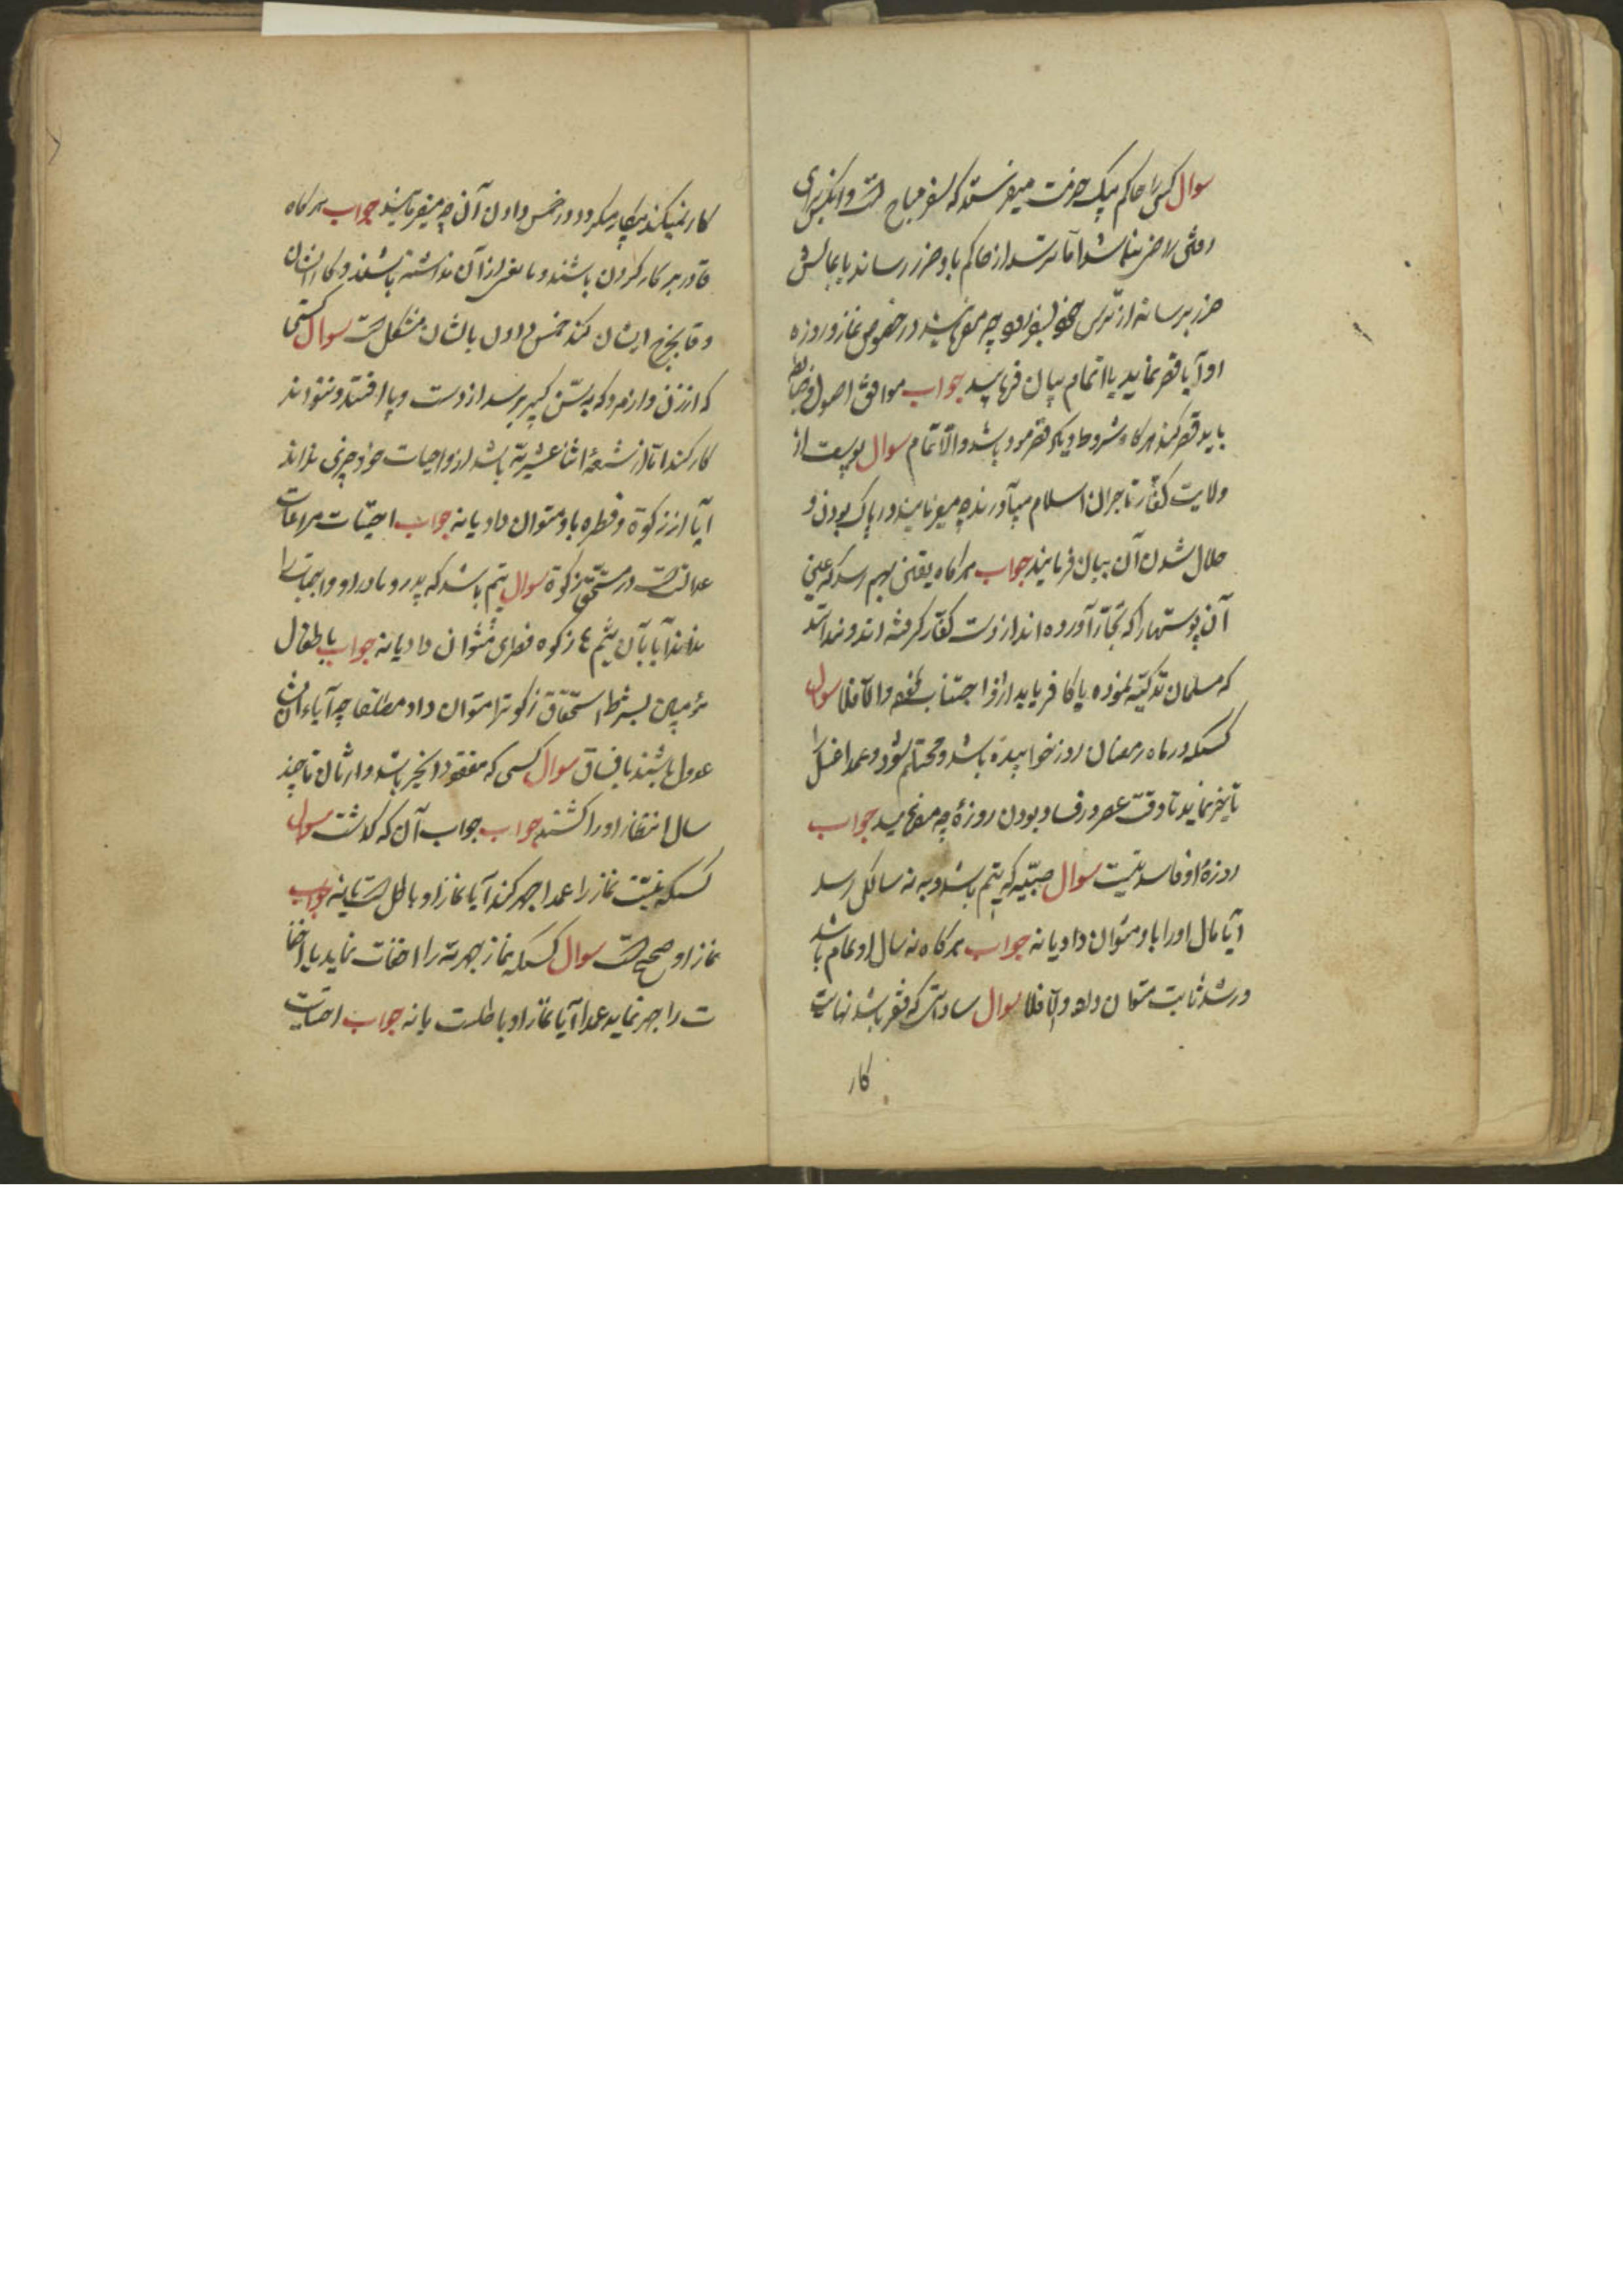 سوال کسی را حاکم پیک حرفت میفرستد که سفر مباح است و آنکس برای
رفتن راضی نباشد اما ترسد از حاکم باو ضرر رساند یا بمالش
ضرر برساند از ترس خود بسفر رود چه میفرمایند در خصوص نماز و روزه
او آیا قصر نماید یا اتمام بیان فرمایید جواب موافق اصول و ضابطه
باید قصر کند هر کاه شروط دیکر قصر موجود باشد و الا تمام سوال پوست از
ولایت کفار تاجران اسلام میآورند چه میفرمایند در پاک بودن و
حلال شدن آن بیان فرمایند جواب هر کاه یقین بهم رسد که عین
آن پوستها را که تجار آورده اند از دست کفار کرفته اند و ندانند
که مسلمان تذکیه نموده یا کافر باید از او اجتناب نمود و الا فلا سوال
کسیکه در ماه رمضان روز خوابیده باشد و محتلم شود و عمدا غسل را
تاخیر نماید تا وقت عصر در فساد بودن روزه چه میفرمایید جواب
روزه او فاسد نیست سوال صبیه که یتیم باشد و به نه سالکی رسد
آیا مال او را باو میتوان داد یا نه جواب هر کاه نه سال او تمام باشد
و رشد ثابت میتوان داد و الا فلا سوال ساداتی که فقیر باشد نهایت
کار
کار نمیکند بیکار میکردد در خمس دادن آن چه میفرمایند جواب هر کاه
قادر بر کار کردن باشند و مانعی از آن نداشته باشند و کار ایشان
وفا بخرج ایشان کند خمس دادن بایشان مشکل است سوال کسی
که از زن و از مرد که به سن کبیر برسد از دست و پا افتد و نتواند
کار کند اما از شیعه اثنا عشریه باشد از واجبات خود چیزی نداند
آیا از زکوة و فطره باو میتوان داد یا نه جواب احتیاط مراعات
عدالت است در مستحق زکوة سوال یتیم باشد که پدر و مادر او واجبات را
ندانند آیا بآن یتیم ها زکوه فطری میتوان داد یا نه جواب باطفال
مؤمنین بشرط استحقاق زکوة را میتوان داد مطلقا چه آباء ایشان
عدول باشند یا فساق سوال کسی که مفقود الخبر باشد وارثان تا چند
سال انتظار او را کشند جواب جواب آن که کذشت سوال
کسیکه نیت نماز را عمدا جهر کند آیا نماز او باطل است یا نه جواب
نماز او صحیح است سوال کسیکه نماز جهریه را اخفات نماید یا اخفا
ت را جهر نماید عمدا آیا نماز او باطلست یا نه جواب احتیاط